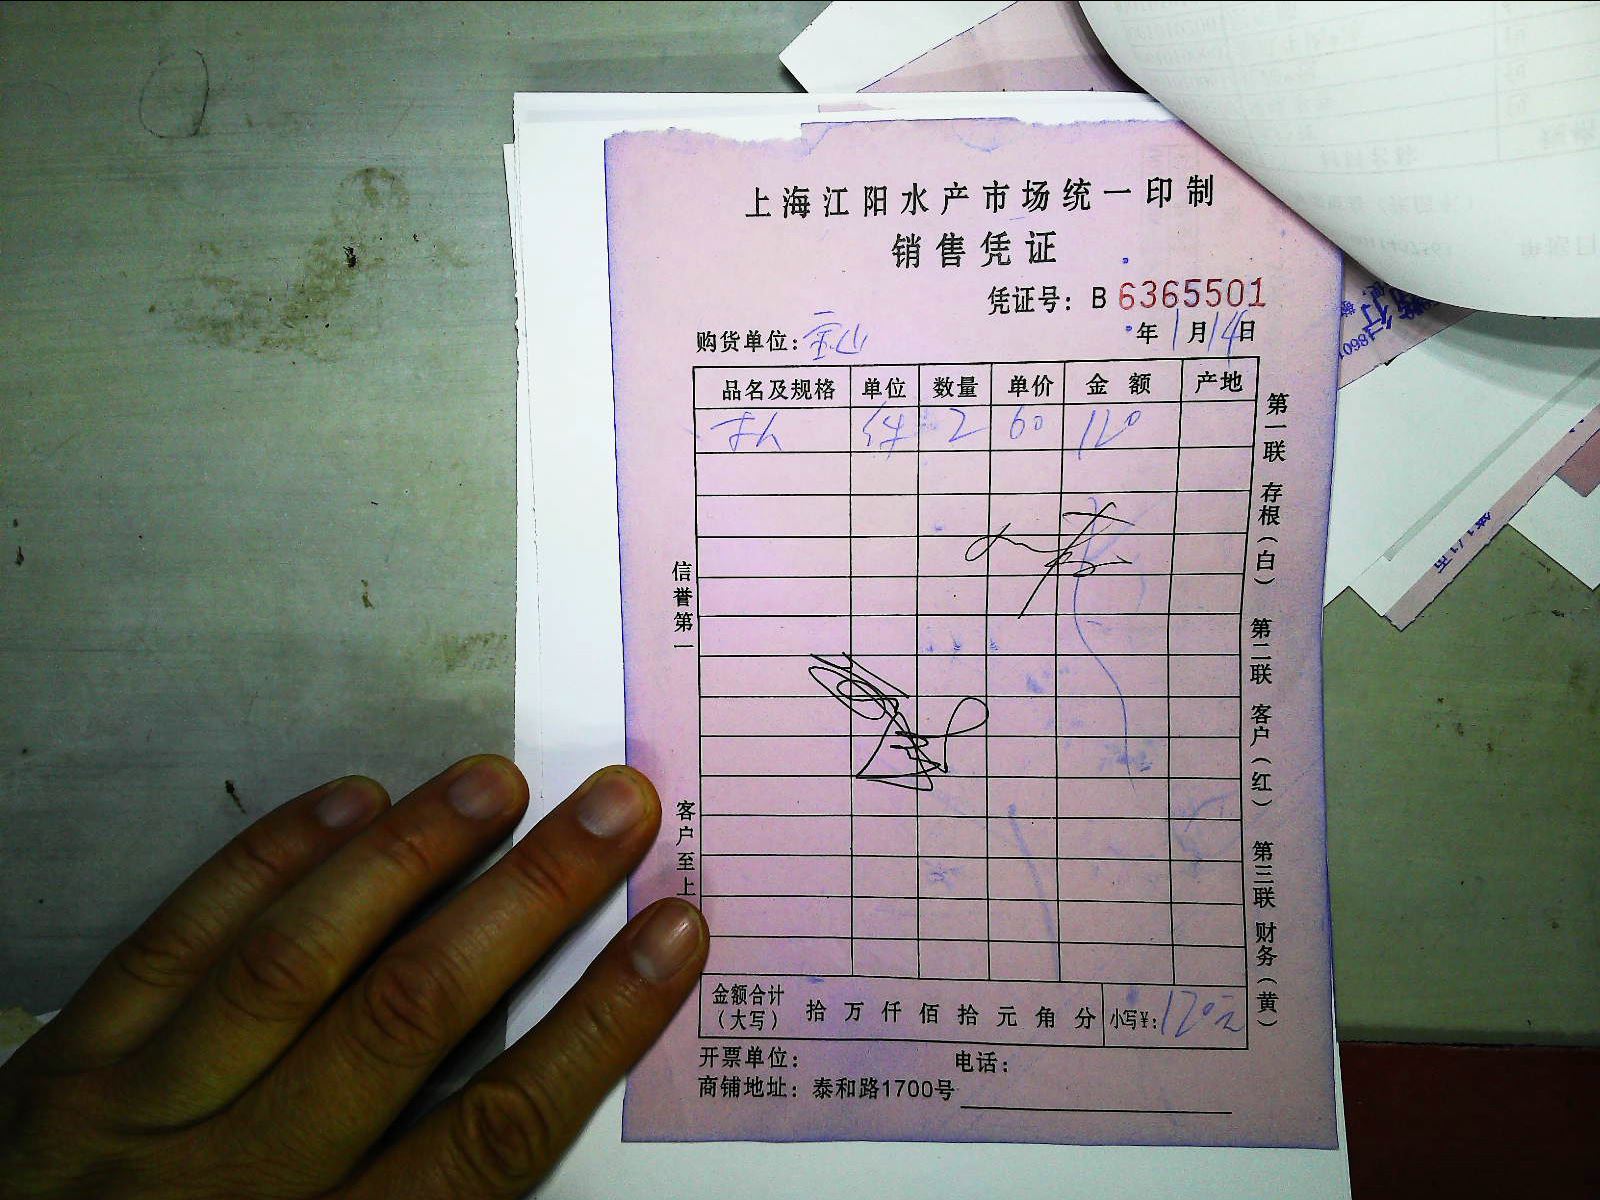 上海江阳水产市场统一印制
销售凭证
凭证号：B 6365501
购货单位：宝山 年1月14日
品名及规格 单位 数量 单价 金额 产地
件 2 60 120
信誉第一
客户至上
第一联 存根（白） 第二联 客户（红） 第三联 财务（黄）
金额合计（大写） 拾 万 仟 佰 拾 元 角 分 小写¥：120元
开票单位： 电话：
商铺地址：泰和路1700号